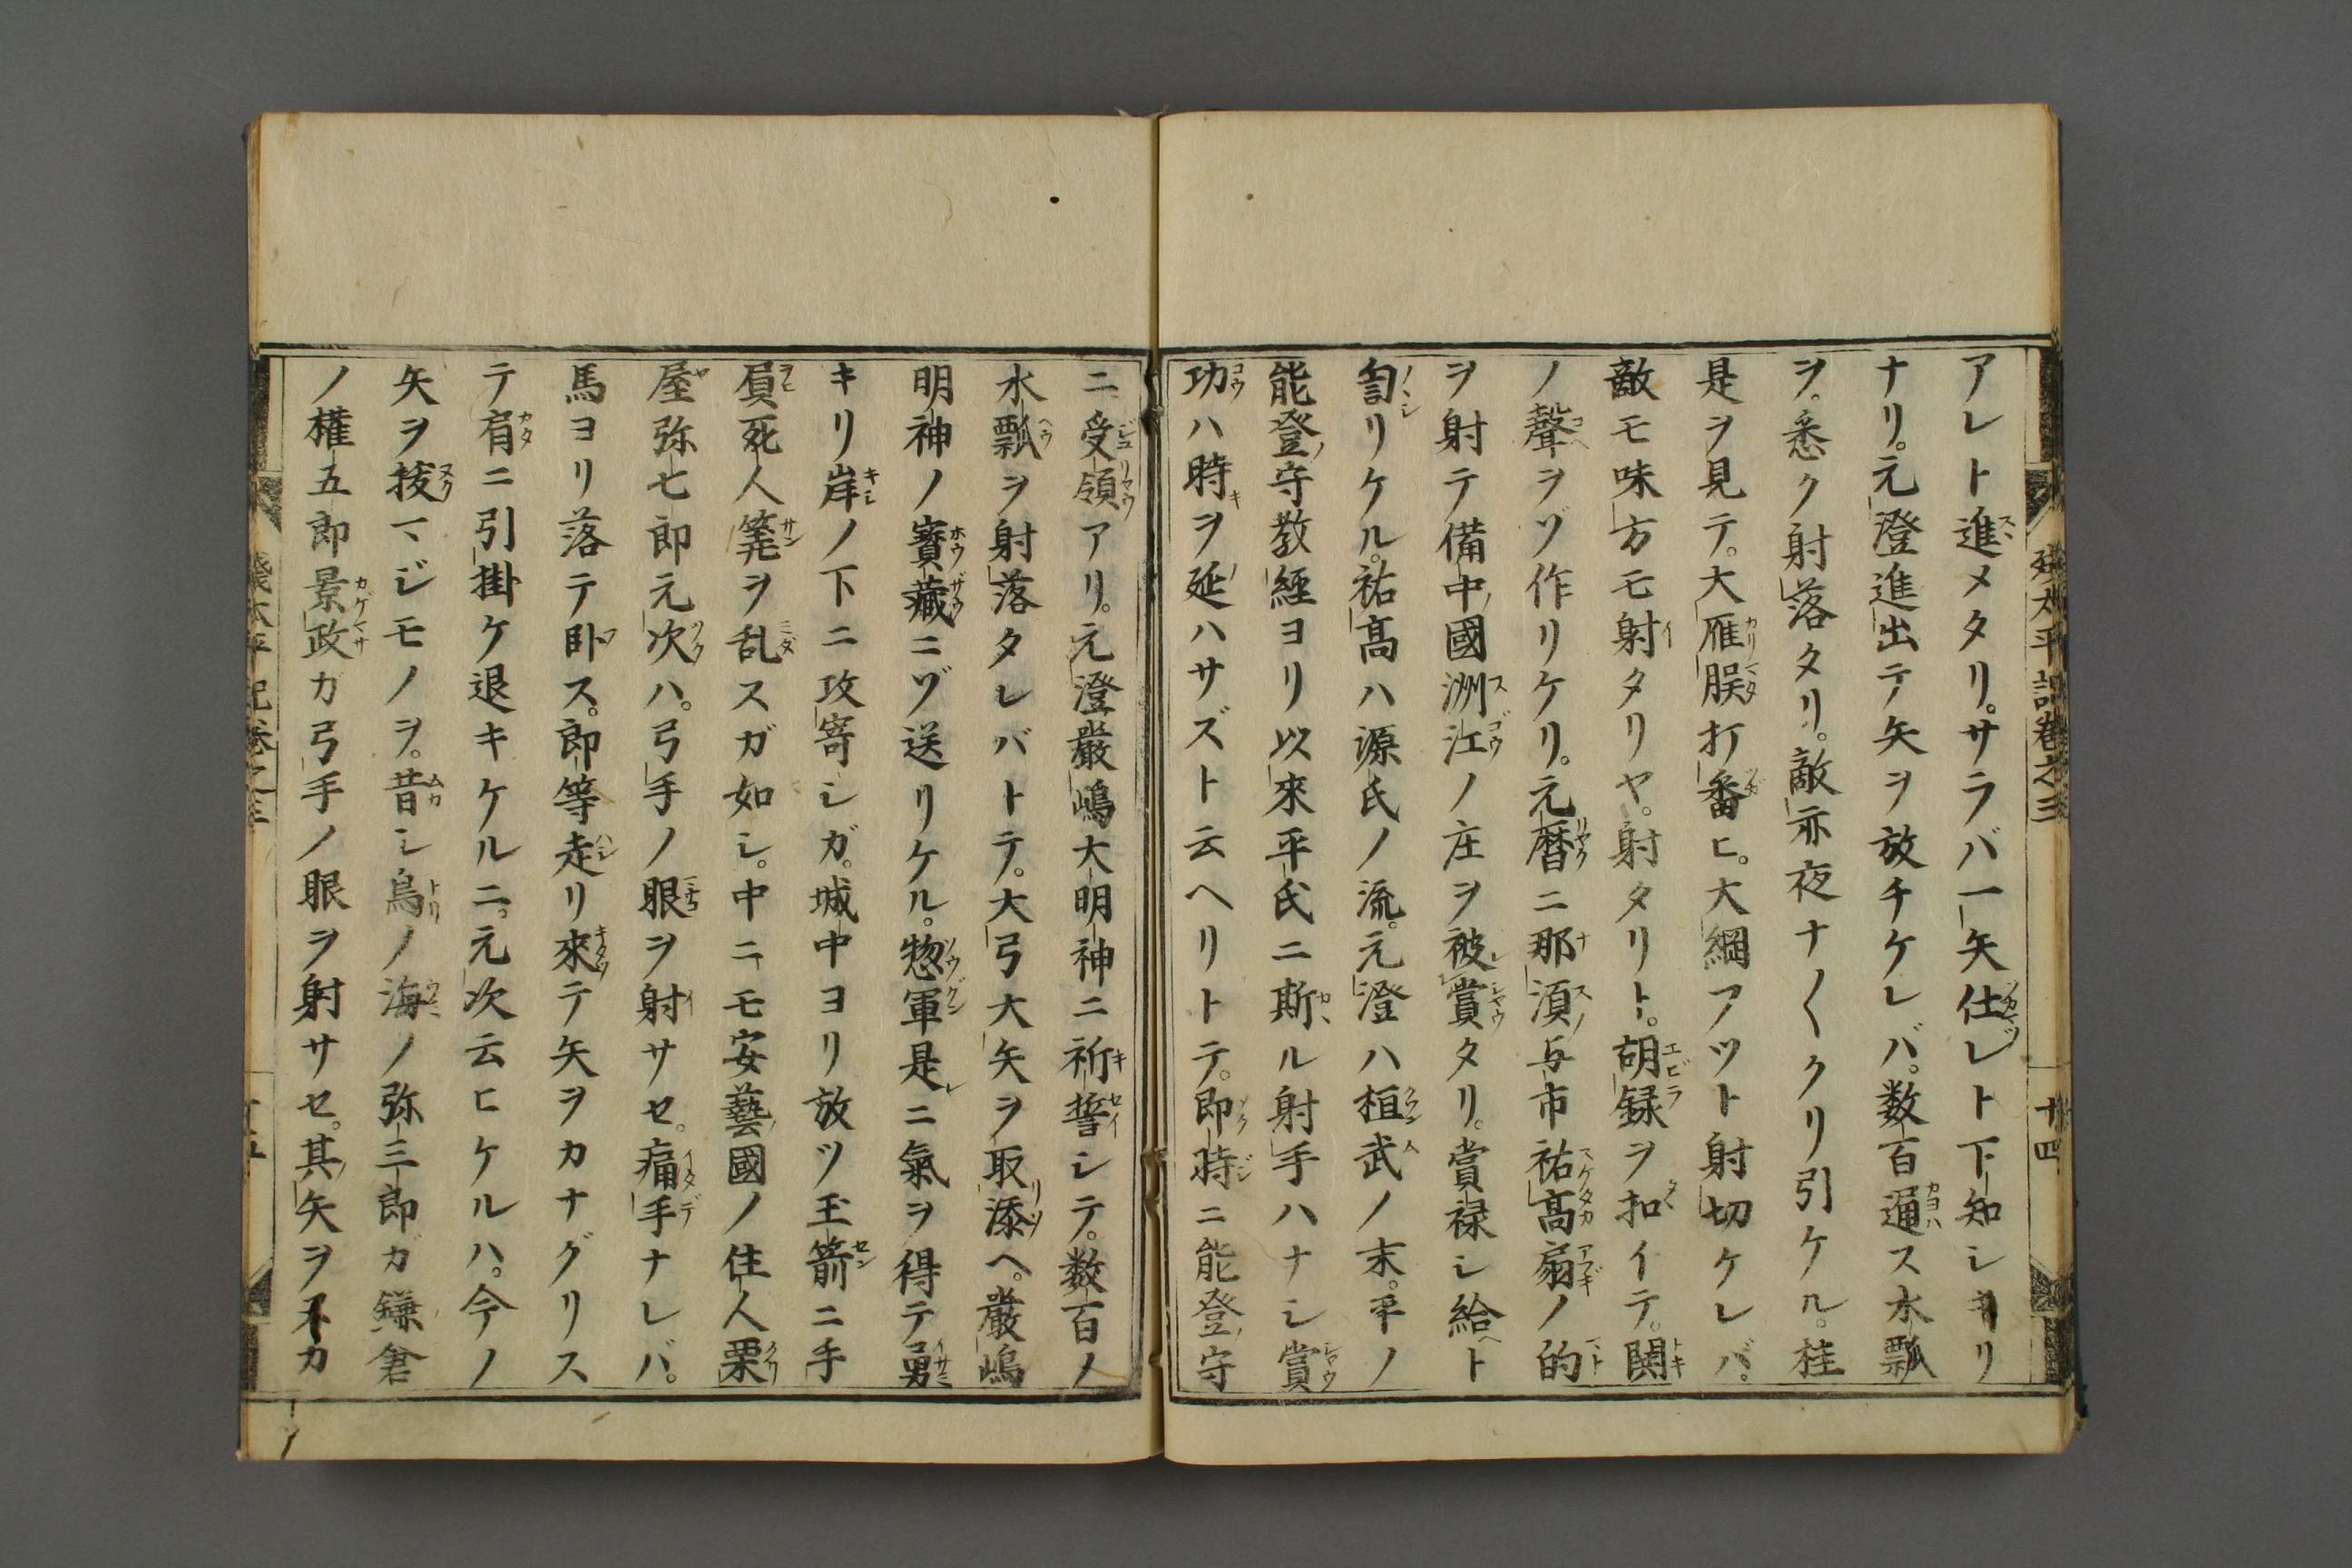 アレト進メタリ。サラバ一矢仕レト下知シキリ
ナリ。元澄進出テ矢ヲ放チケレバ。数百通ス水瓢
ヲ。悉ク射落タリ。敵亦夜ナ〱クリ引ケル。桂
是ヲ見テ。大雁脵打番ヒ。大綱アツト射切ケレバ。
敵モ味方モ射タリヤ。射タリト。胡録ヲ扣イテ。鬨
ノ聲ヲゾ作リケリ。元暦ニ那須与市祐高扇ノ的
ヲ射テ備中國洲江ノ庄ヲ被賞タリ。賞禄シ給ト
訇リケル。祐高ハ源氏ノ流。元澄ハ桓武ノ末。平ノ
能登守教經ヨリ以來平氏ニ斯ル射手ハナシ賞
功ハ時ヲ延ハサズト云ヘリトテ。即時ニ能登守
ニ受領アリ。元澄嚴嶋大明神ニ祈誓シテ。数百ノ
水瓢ヲ射落タレバトテ。大弓大矢ヲ取添ヘ。嚴嶋
明神ノ寳藏ニゾ送リケル。惣軍是ニ氣ヲ得テ勇
キリ岸ノ下ニ攻寄シガ。城中ヨリ放ツ玉箭ニ手
負死人筭ヲ乱スガ如シ。中ニモ安藝國ノ住人栗
屋弥七郎元次ハ。弓手ノ眼ヲ射サセ。痛手ナレバ。
馬ヨリ落テ臥ス。郎等走リ來テ矢ヲカナグリス
テ肩ニ引掛ケ退キケルニ。元次云ヒケルハ。今ノ
矢ヲ抜マジモノヲ。昔シ鳥ノ海ノ弥三郎ガ鎌倉
ノ權五郎景政カ弓手ノ眼ヲ射サセ。其矢ヲ不カ
残太平記卷之三
十四
残太平記卷之三
十五